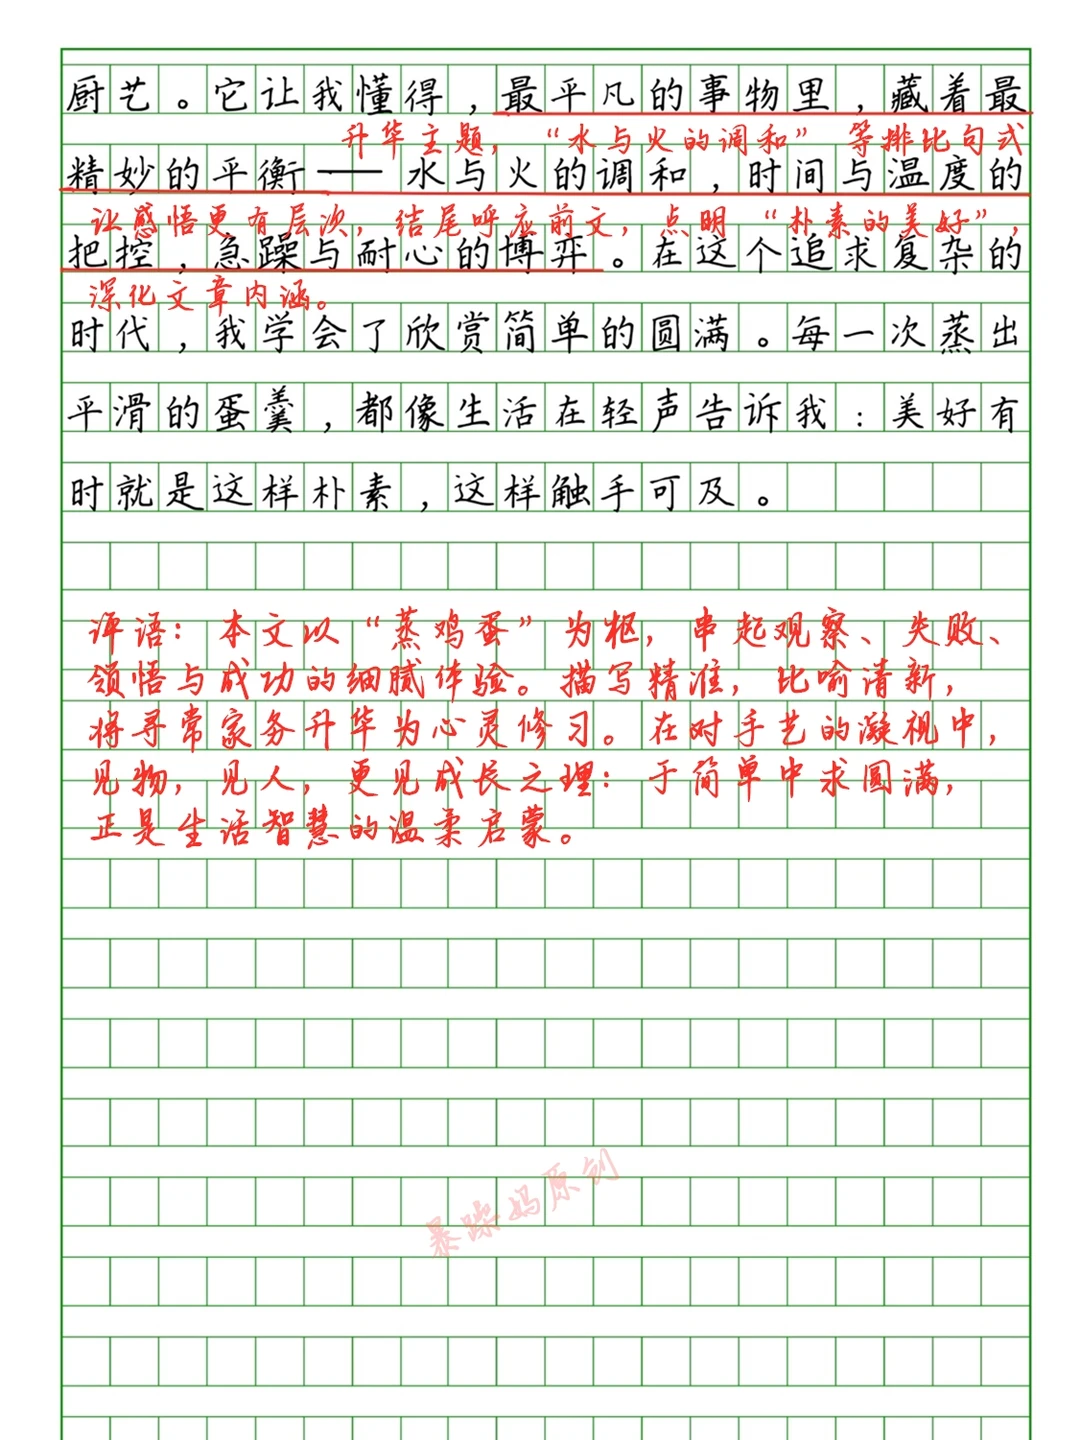 厨艺。它让我懂得，最平凡的事物里，藏着最
升华主题，“水与火的调和”等排比句式
精妙的平衡——水与火的调和，时间与温度的
让感悟更有层次，结尾呼应前文，点明“朴素的美好”，
把控，急躁与耐心的博弈。在这个追求复杂的
深化文章内涵。
时代，我学会了欣赏简单的圆满。每一次蒸出
平滑的蛋羹，都像生活在轻声告诉我：美好有
时就是这样朴素，这样触手可及。
评语：本文以“蒸鸡蛋”为枢，串起观察、失败、
领悟与成功的细腻体验。描写精准，比喻清新，
将寻常家务升华为心灵修习。在对手艺的凝视中，
见物，见人，更见成长之理：于简单中求圆满，
正是生活智慧的温柔启蒙。
暴躁妈原创